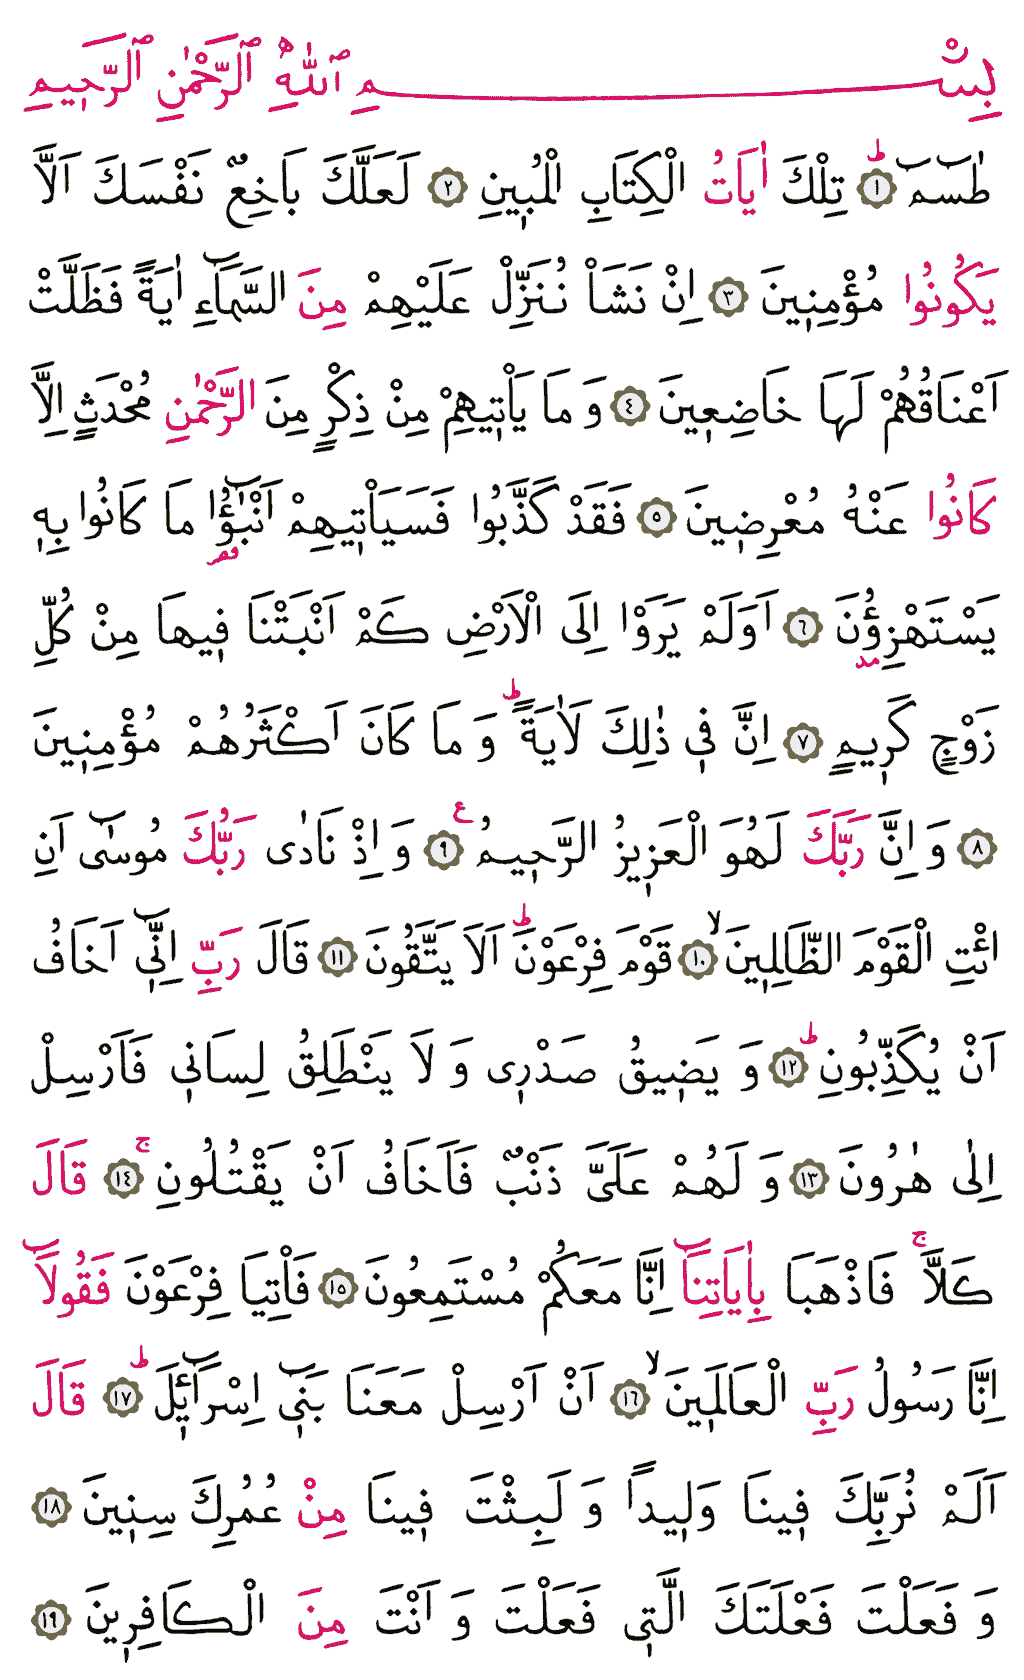 بِسْمِ ٱللّٰهِ ٱلرَّحْمٰنِ ٱلرَّحٖيمِ
طٰسٓمٓ ط ﴿١﴾ تِلْكَ اٰيَاتُ الْكِتَابِ الْمُبٖينِ ﴿٢﴾ لَعَلَّكَ بَاخِعٌ نَفْسَكَ اَلَّا
يَكُونُوا مُؤْمِنٖينَ ﴿٣﴾ اِنْ نَشَأْ نُنَزِّلْ عَلَيْهِمْ مِنَ السَّمَٓاءِ اٰيَةً فَظَلَّتْ
اَعْنَاقُهُمْ لَهَا خَاضِعٖينَ ﴿٤﴾ وَ مَا يَأْتٖيهِمْ مِنْ ذِكْرٍ مِنَ الرَّحْمٰنِ مُحْدَثٍ اِلَّا
كَانُوا عَنْهُ مُعْرِضٖينَ ﴿٥﴾ فَقَدْ كَذَّبُوا فَسَيَأْتٖيهِمْ اَنْبٰٓؤُا قصر مَا كَانُوا بِهٖ
يَسْتَهْزِؤُنَ مد ﴿٦﴾ اَوَلَمْ يَرَوْا اِلَى الْاَرْضِ كَمْ اَنْبَتْنَا فٖيهَا مِنْ كُلِّ
زَوْجٍ كَرٖيمٍ ﴿٧﴾ اِنَّ فٖي ذٰلِكَ لَاٰيَةً ط وَ مَا كَانَ اَكْثَرُهُمْ مُؤْمِنٖينَ
﴿٨﴾ وَ اِنَّ رَبَّكَ لَهُوَ الْعَزٖيزُ الرَّحٖيمُ ع ﴿٩﴾ وَ اِذْ نَادٰى رَبُّكَ مُوسٰٓى اَنِ
ائْتِ الْقَوْمَ الظَّالِمٖينَ لا ﴿١٠﴾ قَوْمَ فِرْعَوْنَ ط اَلَا يَتَّقُونَ ﴿١١﴾ قَالَ رَبِّ اِنّٖٓي اَخَافُ
اَنْ يُكَذِّبُونِ ط ﴿١٢﴾ وَ يَضٖيقُ صَدْرٖى وَ لَا يَنْطَلِقُ لِسَانٖي فَاَرْسِلْ
اِلٰى هٰرُونَ ﴿١٣﴾ وَ لَهُمْ عَلَيَّ ذَنْبٌ فَاَخَافُ اَنْ يَقْتُلُونِ ج ﴿١٤﴾ قَالَ
كَلَّا ج فَاذْهَبَا بِاٰيَاتِنَٓا اِنَّا مَعَكُمْ مُسْتَمِعُونَ ﴿١٥﴾ فَأْتِيَا فِرْعَوْنَ فَقُولَٓا
اِنَّا رَسُولُ رَبِّ الْعَالَمٖينَ لا ﴿١٦﴾ اَنْ اَرْسِلْ مَعَنَا بَنٖٓي اِسْرَٓائٖلَ ط ﴿١٧﴾ قَالَ
اَلَمْ نُرَبِّكَ فٖينَا وَلٖيدًا وَ لَبِثْتَ فٖينَا مِنْ عُمُرِكَ سِنٖينَ ﴿١٨﴾
وَ فَعَلْتَ فَعْلَتَكَ الَّتٖي فَعَلْتَ وَ اَنْتَ مِنَ الْكَافِرٖينَ ﴿١٩﴾